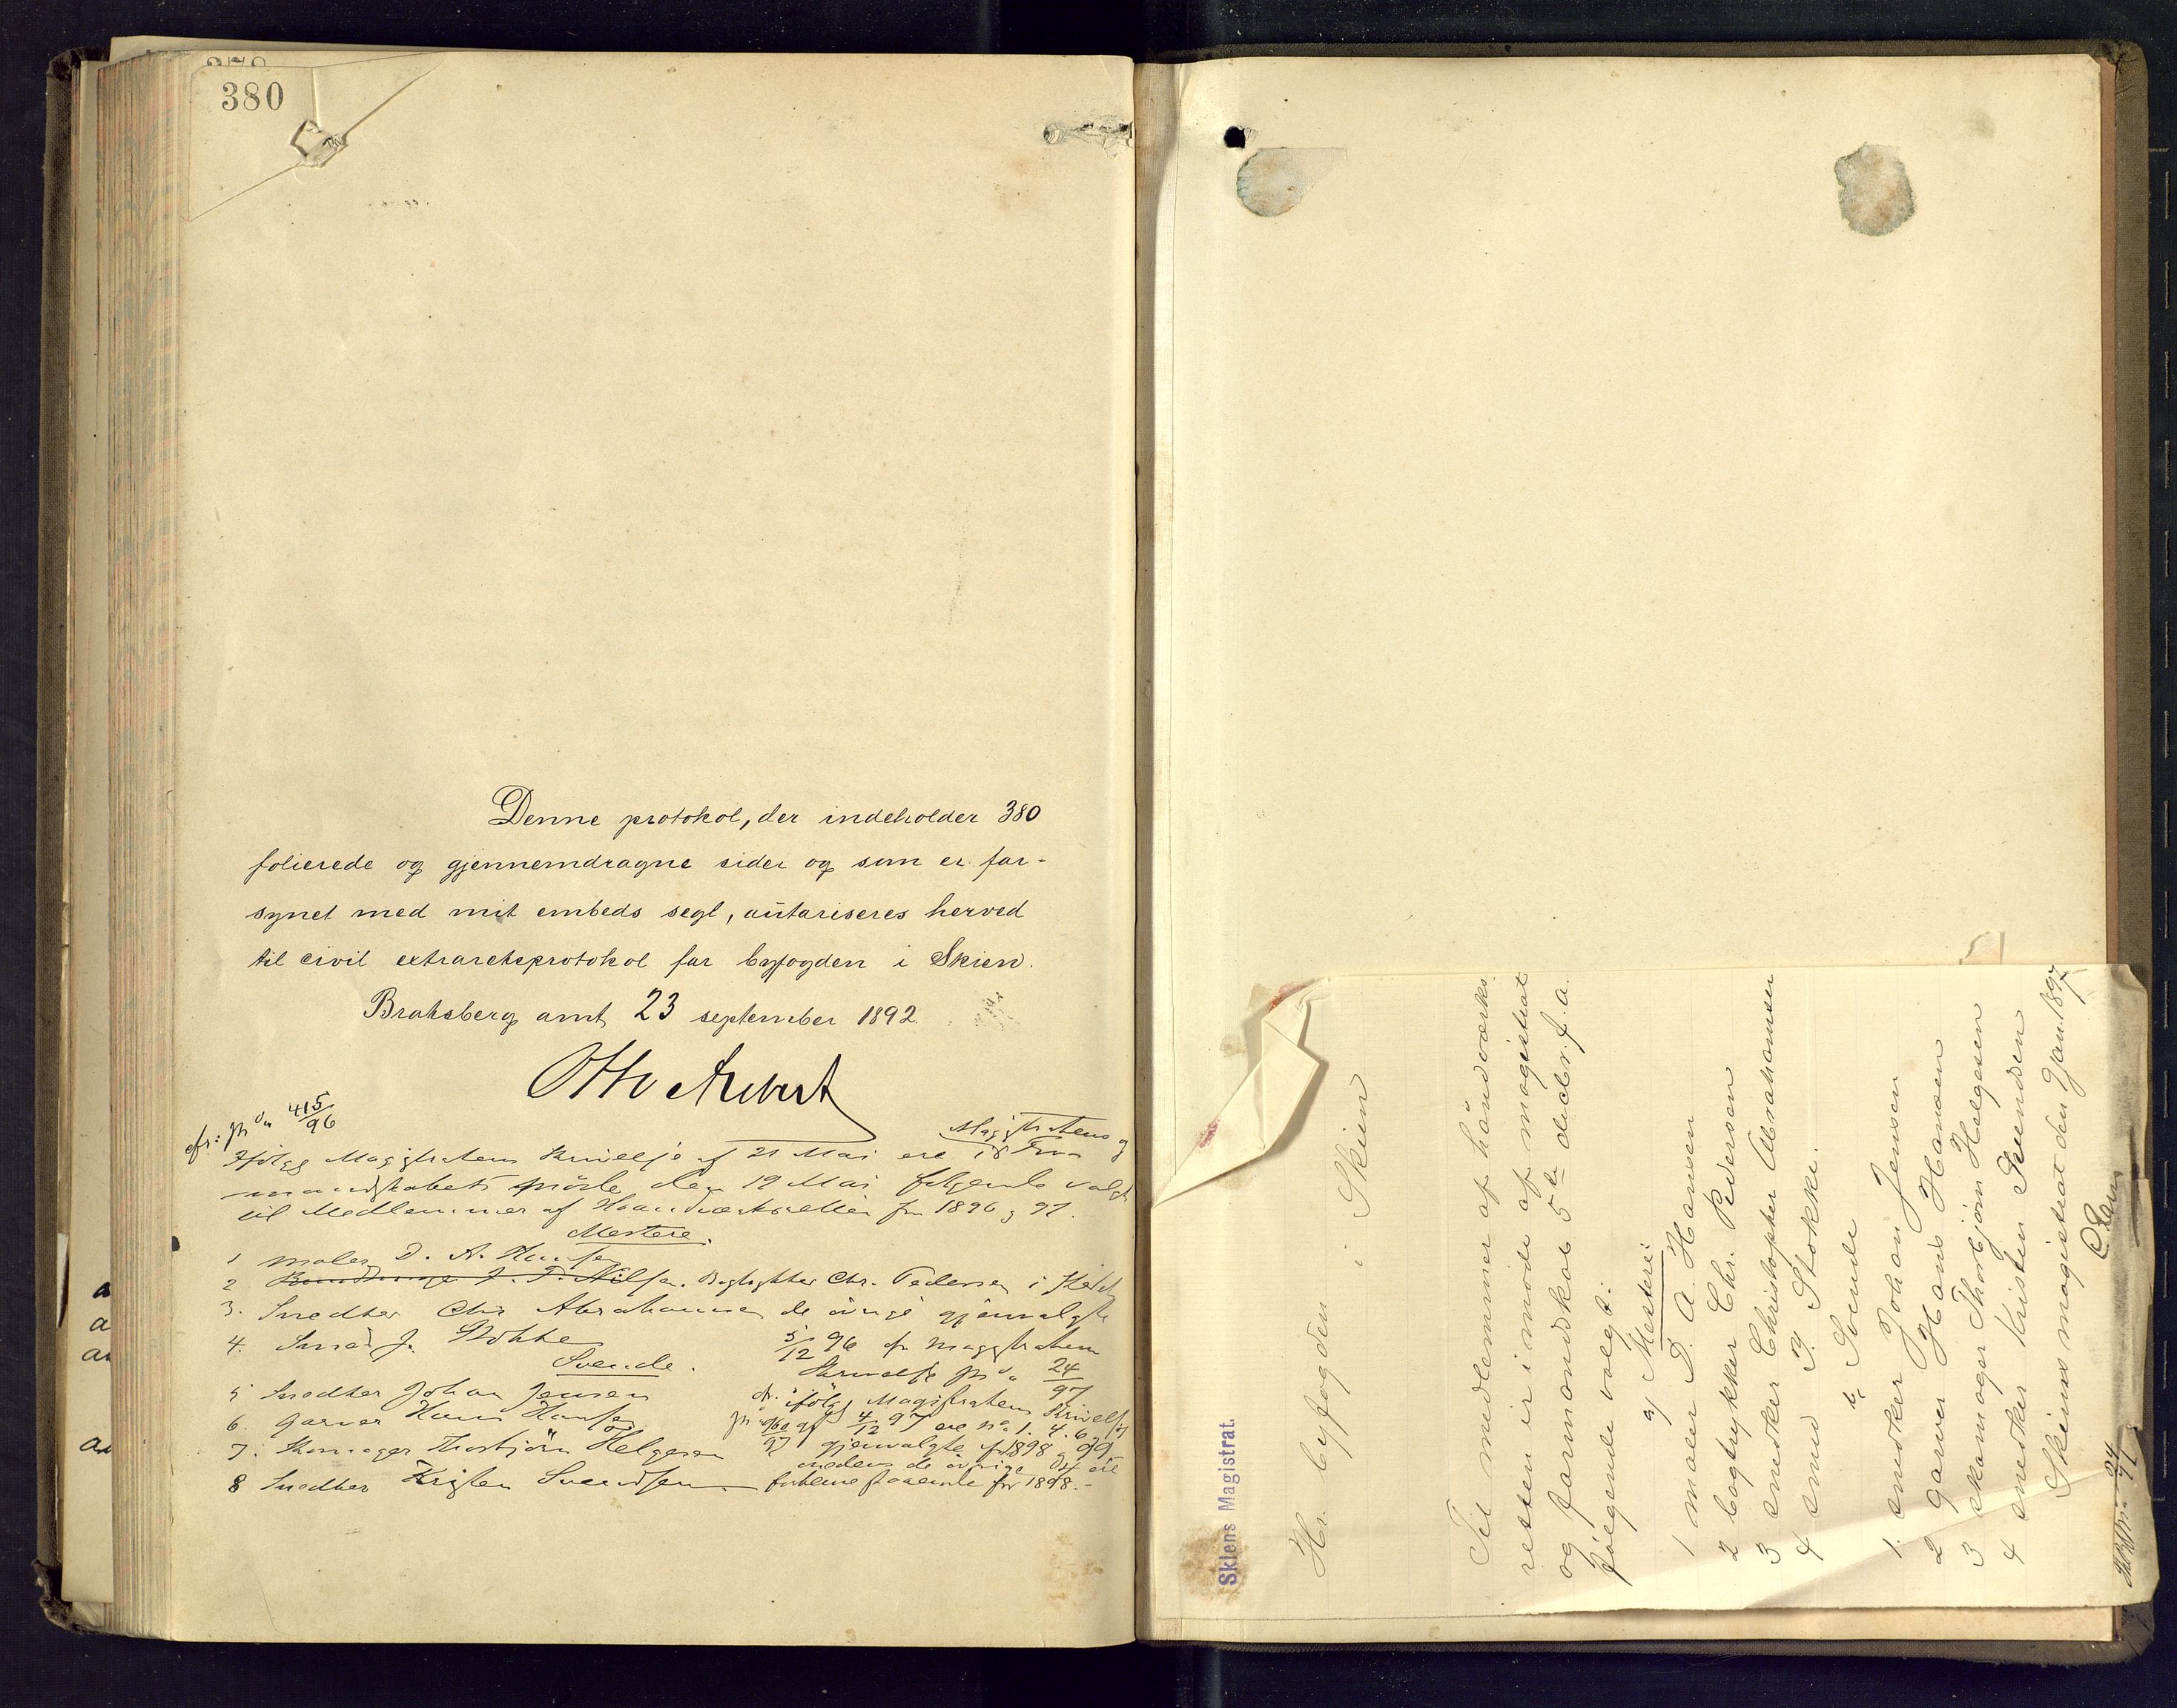 380
Denne protokol, der indeholder 380
folierede og gjennemdragne sider og som er for-
synet med mit embeds segl, autoriseres herved
til civil extraretsprotokol for byfogden i Skien.
Bratsberg amt, 23 september 1892.
cfr: jr. no 415/96
Ifølge Magistratens Skrivelse af 21 Mai ere i Magistratens og For-
mandskabets Møde den 19 Mai følgende valgt
til Medlemmer af Haandværksretten for 1896 og 97.
Mestere.
1 maler D. A. Hansen
2 Bogtrykker Chr. Pedersen i Stedet
3. Snedker Chr Abrahamsen de øvrige gjenvalgte
4. Smed J. Stokke 5/12 96 cfr Magistratens
Skrivelse jr. no 24/97
Svende.
5 Snedker Johan Jensen
cfr. ifølge Magistratens Skrivelse
6. Garver Hans Hansen
4/12 97 ere no 1. 4. 6 og 7
7. Skomager Thorbjørn Helgesen
gjenvalgte for 1898 og 99
medens de øvrige
8 Snedker Kristen Svendsen
forblive staaende for 1898.-
Skiens Magistrat.
Hr. byfogden i Skien
Til medlemmer af håndværks
retten er i møde af magistrat
og formandskab 5te decbr. f. a.
følgende valgt:
a) Mestere:
1 maler D. A. Hansen
2 bogtrykker Chr. Pedersen
3 snedker Christopher Abrahamsen
4 smed J. Stokke.
b. Svende
1. snedker Johan Jensen
2 garver Hans Hansen
3 skomager Thorbjørn Helgesen
4 snedker Kristen Svendsen
Skiens magistrat den 9 jan. 1897
24/97